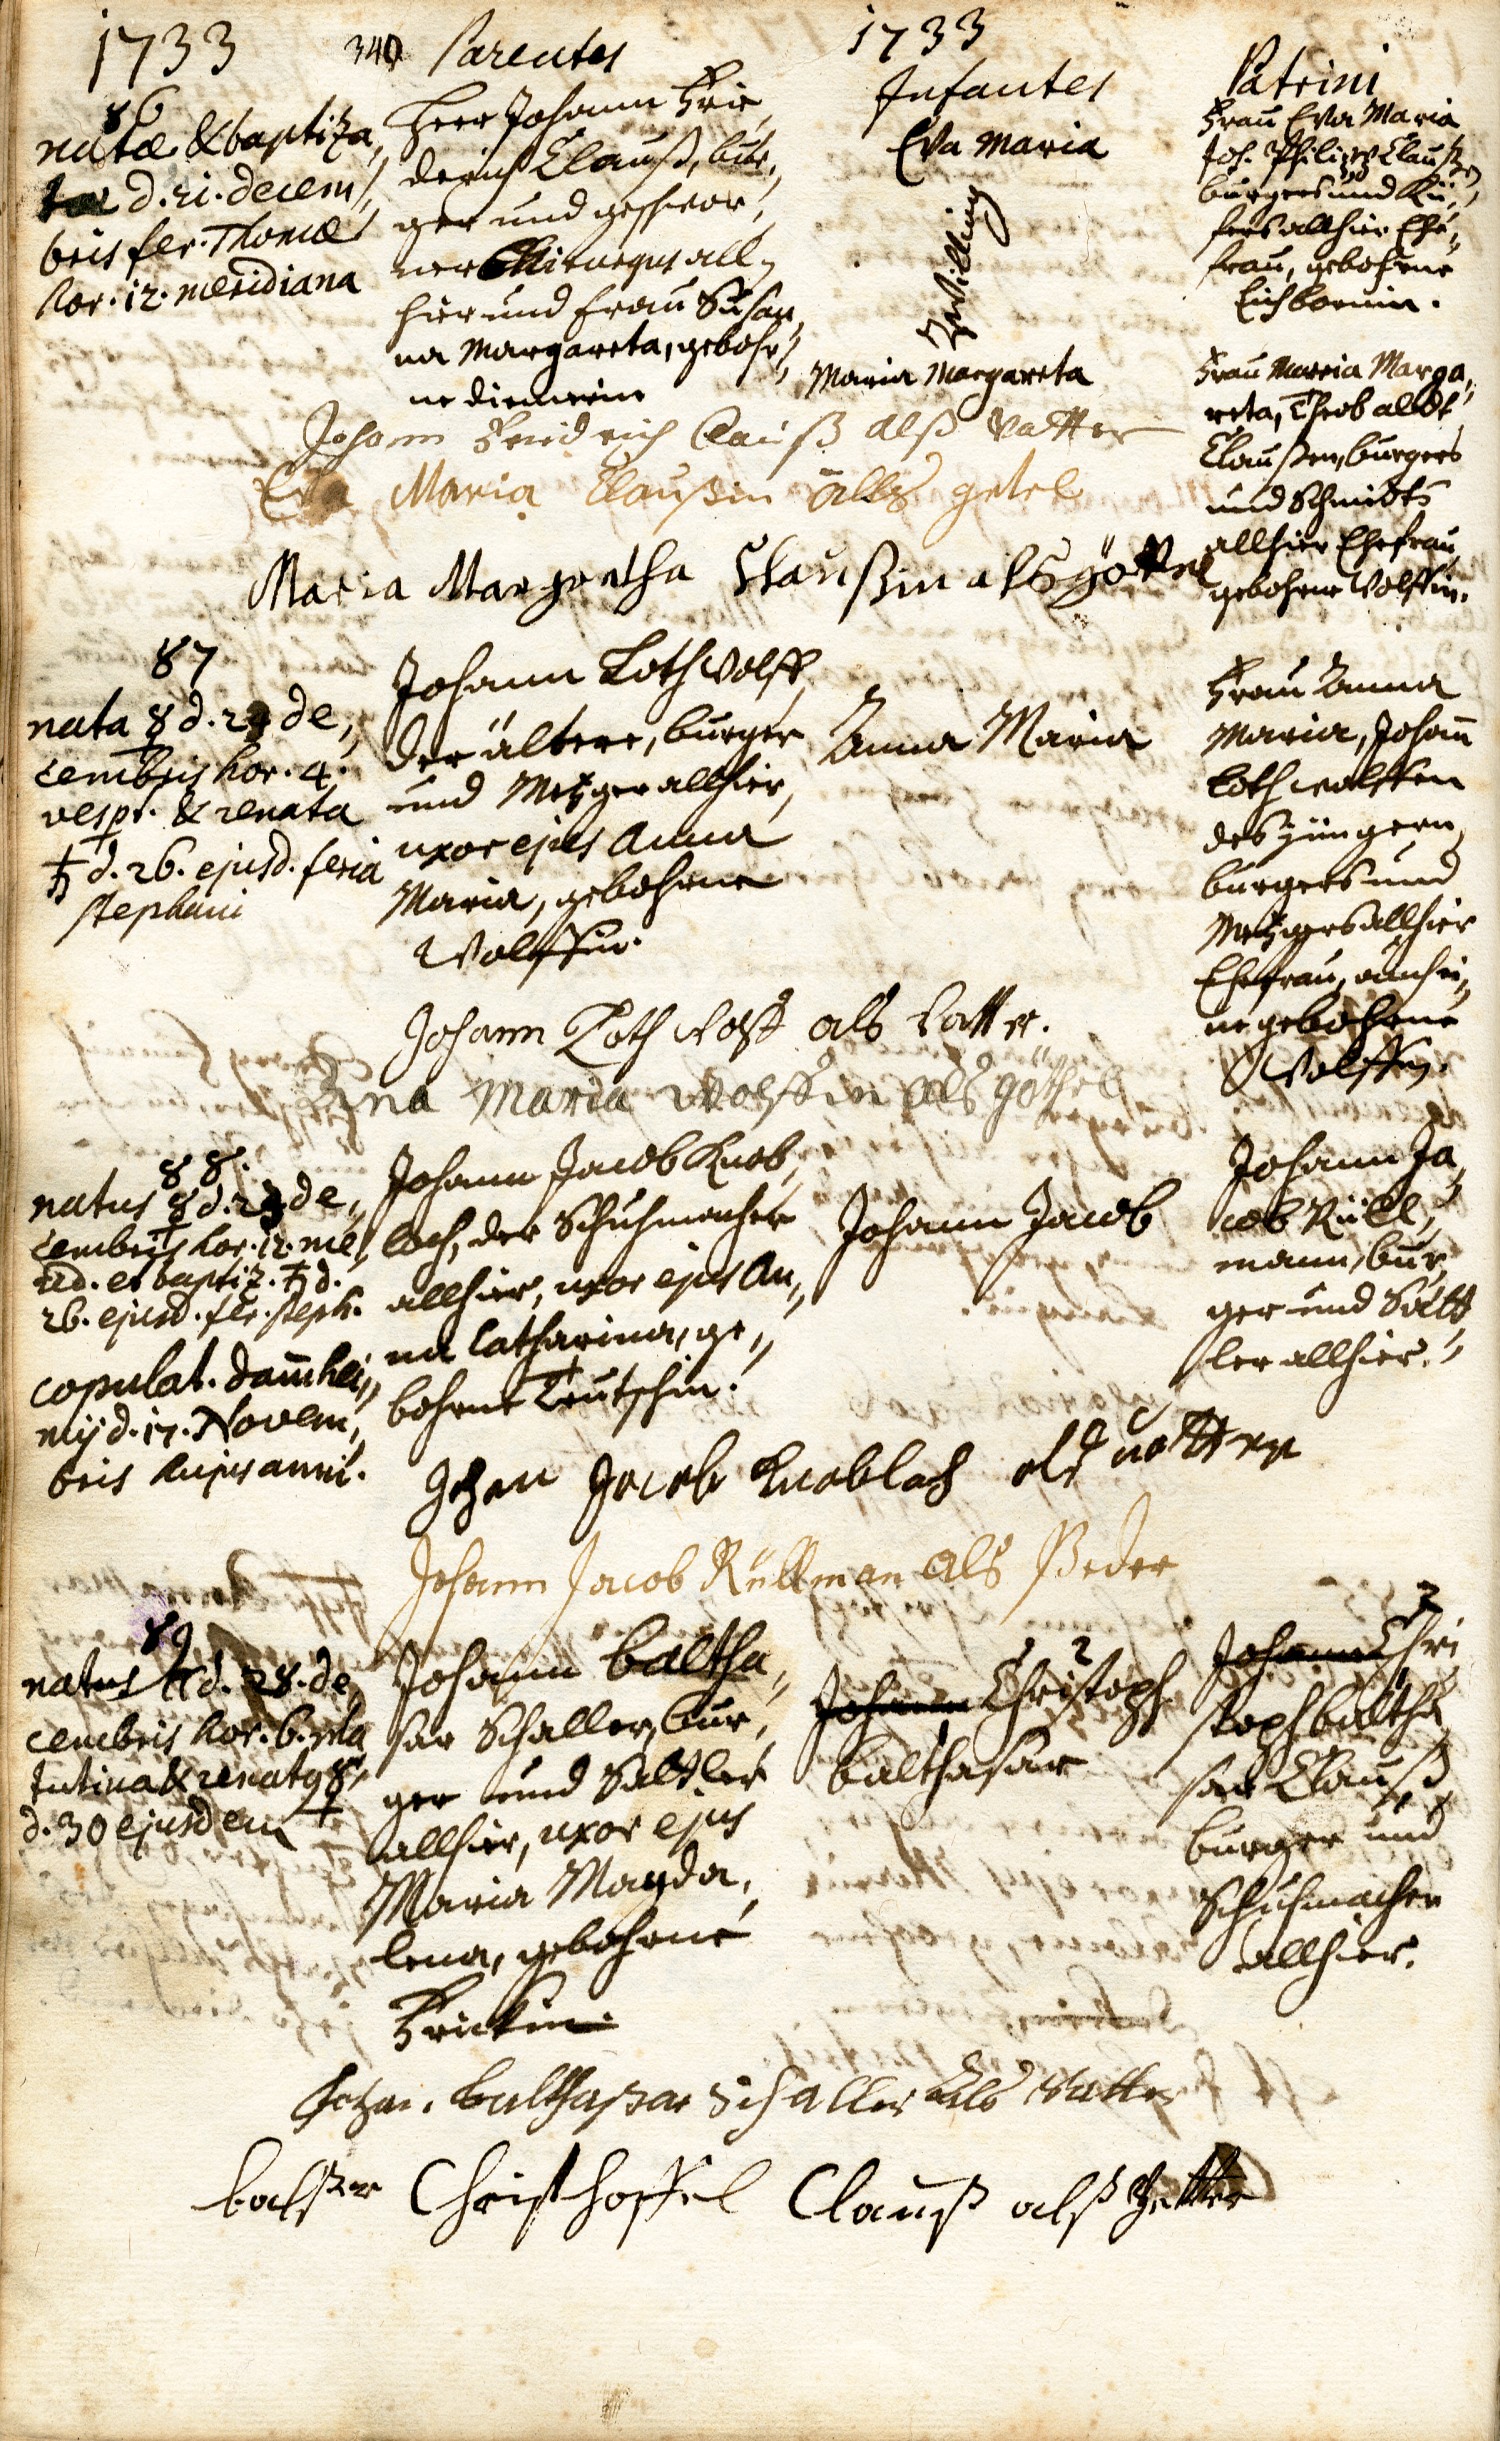 1733
340
Parentes
1733
Infantes
Patrini
86
natæ & baptiza„
tæ d. 21. decem„
bris fer. Thomæ
hor. 12. meridiana
Herr Johann Frie„
derich Clauß, bur„
ger und geschwor„
ner Chirurgus all„
hier und Frau Susan„
na Margareta, gebohr„
ne diemerin
Eva Maria
Zwilling
Maria Margareta
Frau Eva Maria
Joh. Philipp Claußen,
burgers und Kü„
fers allhier Ehe„
frau, gebohrne
Eichbornin.
Frau Maria Marga„
reta, Theobaldt
Claußen, burgers
und Schmidts
allhier Ehefrau
gebohrne Wolffin.
Johann Friedrich Clauß alß Vatter
Eva Maria Claußin alls getel
Maria Margretha Claußin als göttel
87
nata ☿ d. 23 de„
cembris hor. 4.
vesp. & renata
♄ d. 26. ejusd. feria
Stephani
Johann Loth Wolff,
der ältere, burger
und Metzger allhier,
uxor ejus Anna
Maria, gebohrne
Wolffin.
Anna Maria
Frau Anna
Maria, Johann
Loth Wolffen
des jüngern,
burgers und
Metzgers allhier
Ehefrau, auch ei„
ne gebohrne
Wolffin.
Johann Loth Wolff als Vatter.
Ana Maria Wolffin als göthel
88.
natus ☿ d. 23 de„
cembris hor. 12. me„
rid. et baptiz. ♄ d.
26. ejusd. fer. steph.
copulat. Dam̅hei„
mij d. 17. Novem„
bris hujus anni.
Johann Jacob Knob„
loch, der Schuhmacher
allhier, uxor ejus An„
na Catharina, ge„
bohrne Teutschin.
Johann Jacob
Johann Ja„
cob Rüll„
mann, bur„
ger und Satt„
ler allhier.
Johan Jacob Knobloch als vatter
Johann Jacob Rüllman als Peder
89
natus d. 28. de„
cembris hor. 6. ma„
tutina & renatus ☿
d. 30 ejusdem
Johann baltha„
sar Schaller, bur„
ger und Sattler
allhier, uxor ejus
Maria Magda„
lena, gebohrne
Frickin.
2
Johann Christoph
balthasar
2
Johann Chri
stoph baltha
sar Clauß,
burger und
Schuhmacher
allhier.
Johan. balthasar Schaller als Vatter
balßer Christhoffel Clauß alß Petter